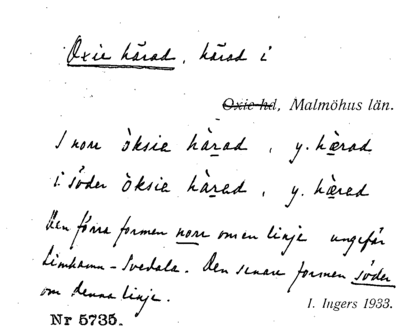 Oxie härad, härad i
Oxie hd, Malmöhus län.
I norr òksie hàrad, y. hærad
i söder òksie hàrad, y. hæred
Den förra formen norr om en linje ungefär
Limhamn-Svedala. Den senare formen söder
om denna linje.
I. Ingers 1933.
Nr 5735.